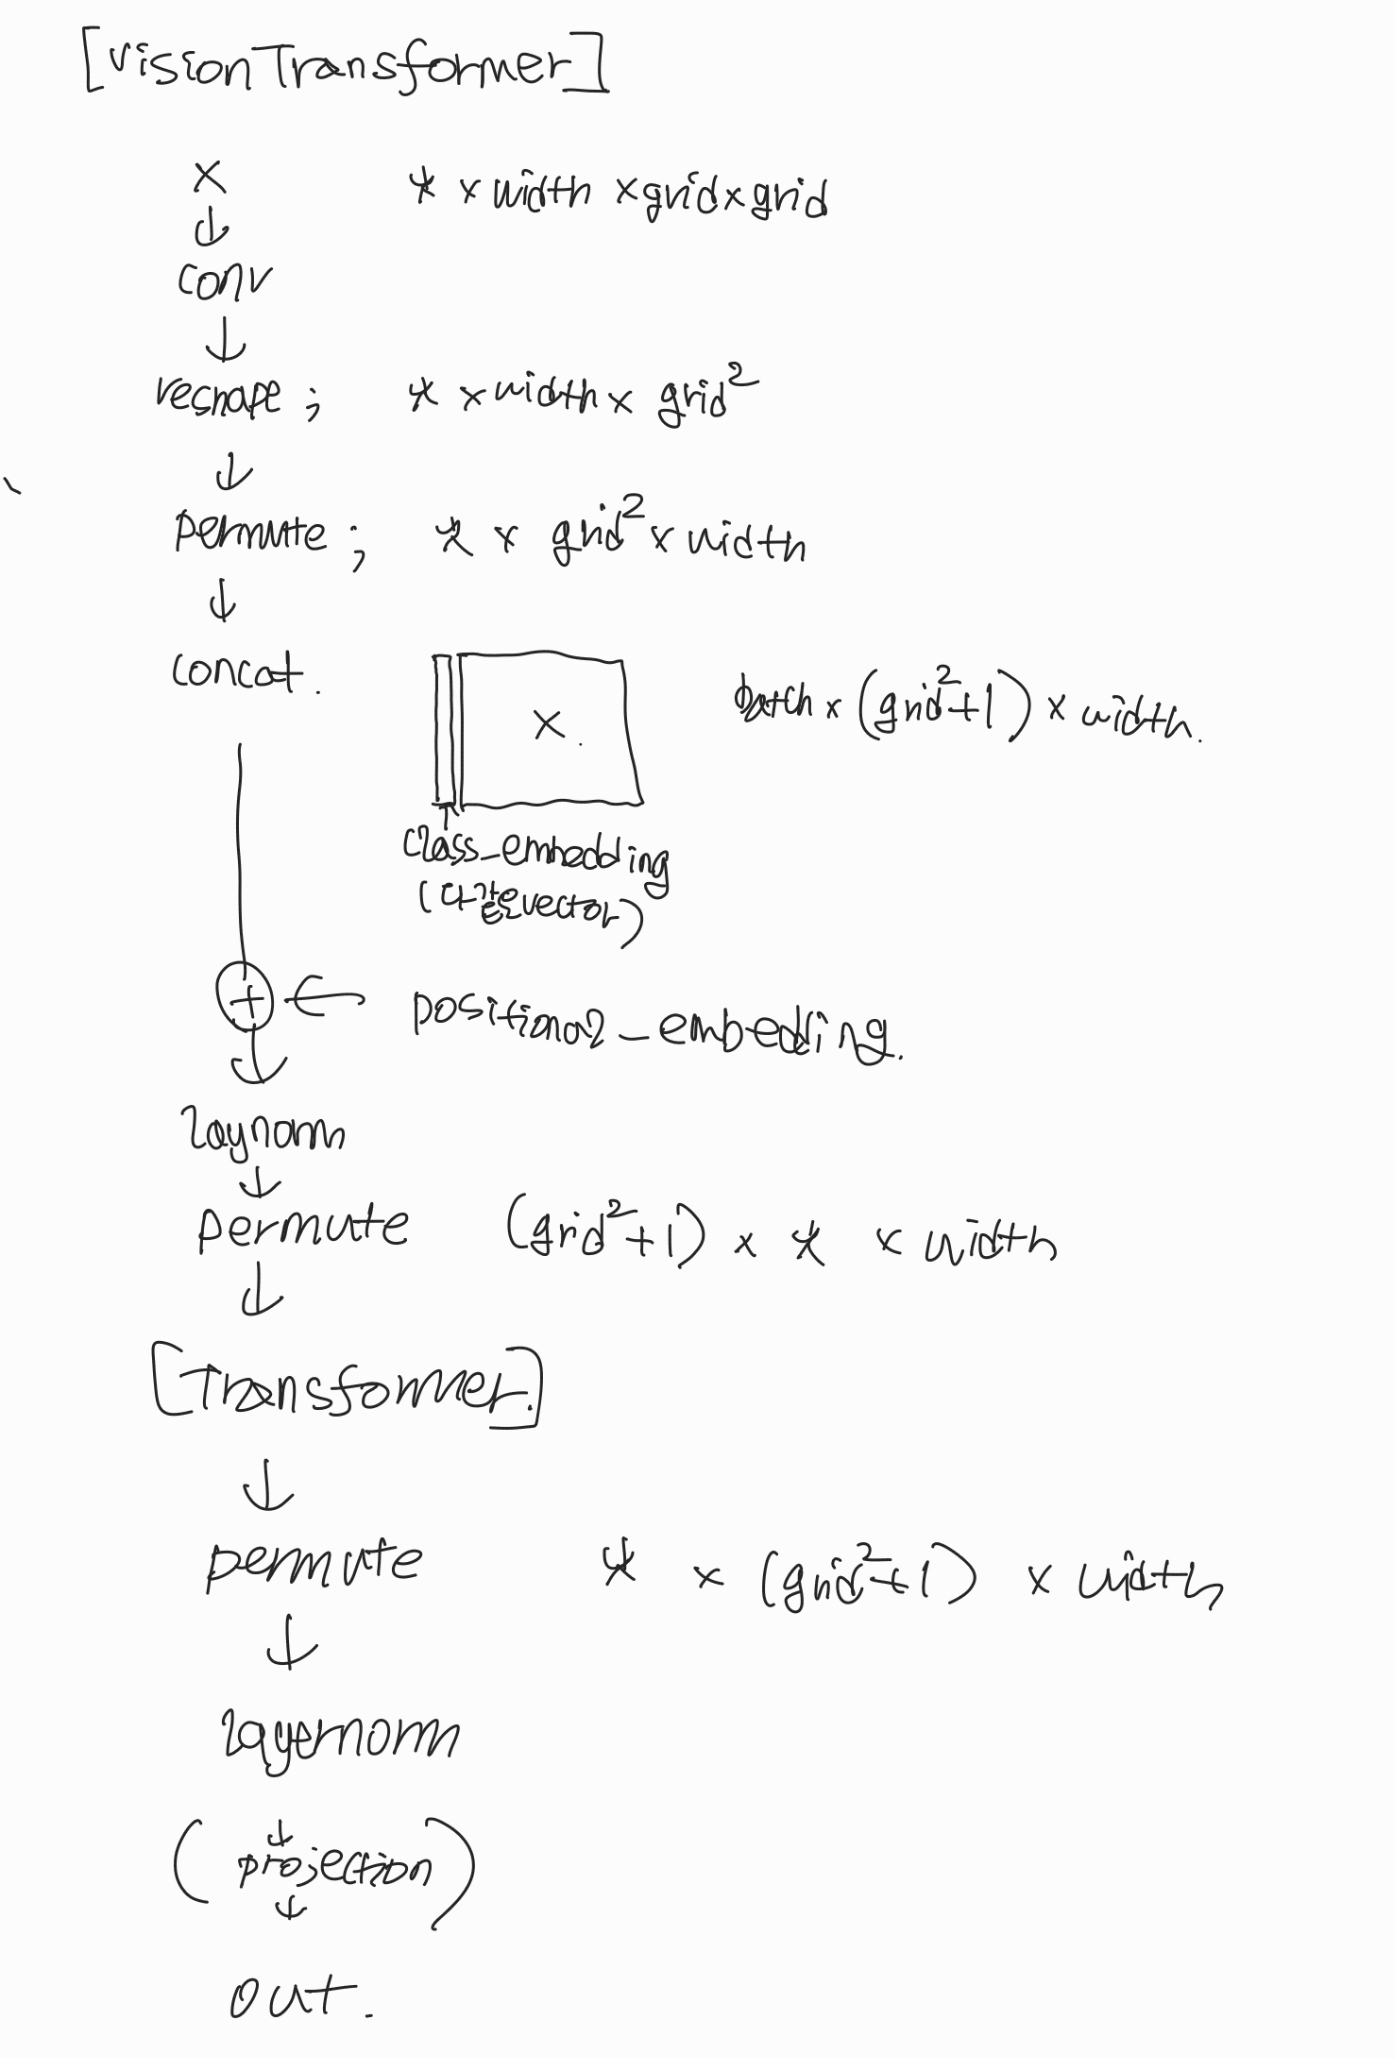 [VisionTransformer]
x * × width × grid × grid
conv
reshape ; * × width × grid²
permute ; * × grid² × width
concat. x. batch × (grid²+1) × width.
class_embedding
vector)
+ ← positional_embedding.
laynorm
permute (grid²+1) × * × width
[Transformer.]
permute * × (grid²+1) × width
layernorm
( projection )
out.